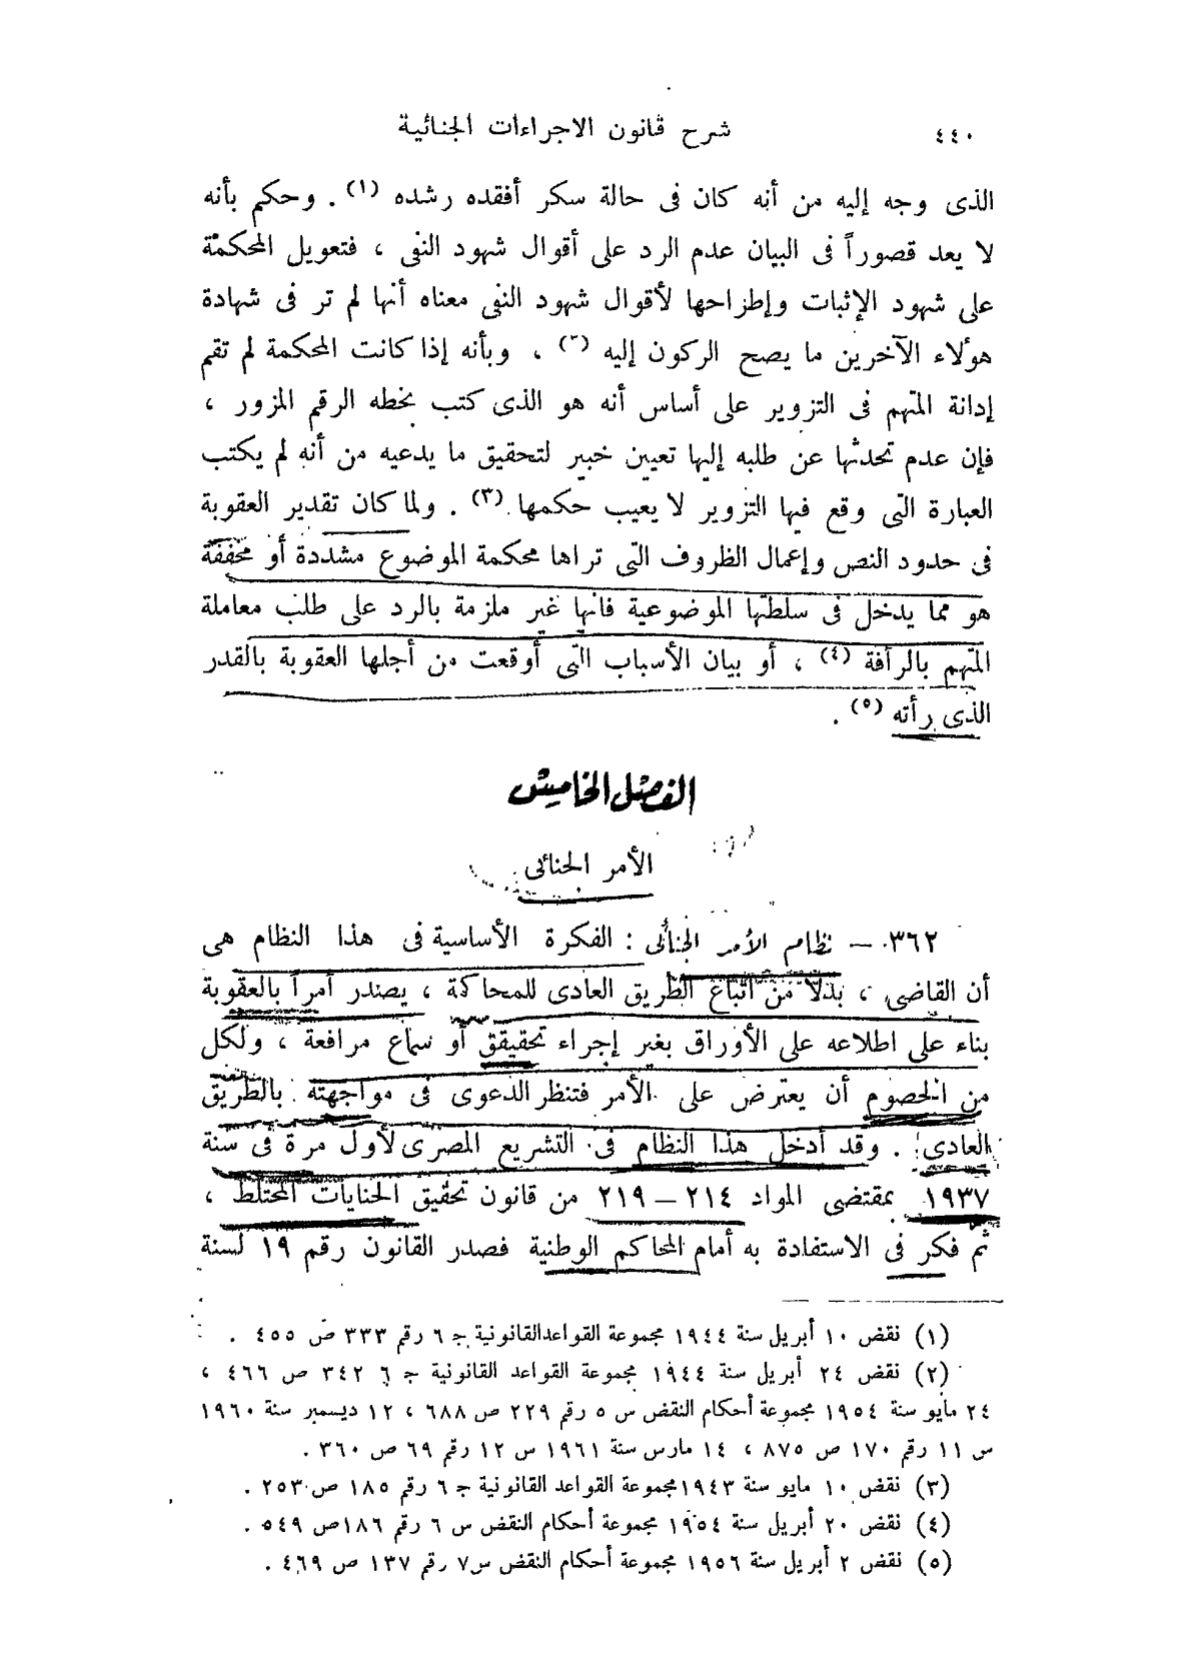 ٤٤٠ شرح قانون الاجراءات الجنائية
الذى وجه إليه من أنه كان فى حالة سكر أفقده رشده (١) . وحكم بأنه
لا يعد قصوراً فى البيان عدم الرد على أقوال شهود النفى ، فتعويل المحكمة
على شهود الإثبات وإطراحها لأقوال شهود النفى معناه أنها لم تر فى شهادة
هؤلاء الآخرين ما يصح الركون إليه (٢) ، وبأنه إذا كانت المحكمة لم تقم
إدانة المتهم فى التزوير على أساس أنه هو الذى كتب بخطه الرقم المزور ،
فإن عدم تحدثها عن طلبه إليها تعيين خبير لتحقيق ما يدعيه من أنه لم يكتب
العبارة التى وقع فيها التزوير لا يعيب حكمها (٣) . ولما كان تقدير العقوبة
فى حدود النص وإعمال الظروف التى تراها محكمة الموضوع مشددة أو مخففة
هو مما يدخل فى سلطتها الموضوعية فانها غير ملزمة بالرد على طلب معاملة
المتهم بالرأفة (٤) ، أو بيان الأسباب التى أوقعت من أجلها العقوبة بالقدر
الذى رأته (٥) .
الفصل الخامس
الأمر الجنائى
٣٦٢ — نظام الأمر الجنائى : الفكرة الأساسية فى هذا النظام هى
أن القاضى ، بدلا من اتباع الطريق العادى للمحاكمة ، يصدر أمراً بالعقوبة
بناء على اطلاعه على الأوراق بغير إجراء تحقيقق أو سماع مرافعة ، ولكل
من الخصوم أن يعترض على الأمر فتنظر الدعوى فى مواجهته بالطريق
العادى . وقد أدخل هذا النظام فى التشريع المصرى لأول مرة فى سنة
١٩٣٧ بمقتضى المواد ٢١٤ — ٢١٩ من قانون تحقيق الجنايات المختلط ،
ثم فكر فى الاستفادة به أمام المحاكم الوطنية فصدر القانون رقم ١٩ لسنة
(١) نقض ١٠ أبريل سنة ١٩٤٤ مجموعة القواعد القانونية ج ٦ رقم ٣٣٣ ص ٤٥٥ .
(٢) نقض ٢٤ أبريل سنة ١٩٤٤ مجموعة القواعد القانونية ج ٦ ٣٤٢ ص ٤٦٦ ،
٢٤ مايو سنة ١٩٥٤ مجموعة أحكام النقض س ٥ رقم ٢٢٩ ص ٦٨٨ ، ١٢ ديسمبر سنة ١٩٦٠
س ١١ رقم ١٧٠ ص ٨٧٥ ، ١٤ مارس سنة ١٩٦١ س ١٢ رقم ٦٩ ص ٣٦٠ .
(٣) نقض ١٠ مايو سنة ١٩٤٣ مجموعة القواعد القانونية ج ٦ رقم ١٨٥ ص ٢٥٣ .
(٤) نقض ٢٠ أبريل سنة ١٩٥٤ مجموعة أحكام النقض س ٦ رقم ١٨٦ ص ٥٤٩ .
(٥) نقض ٢ أبريل سنة ١٩٥٦ مجموعة أحكام النقض س ٧ رقم ١٣٧ ص ٤٦٩ .